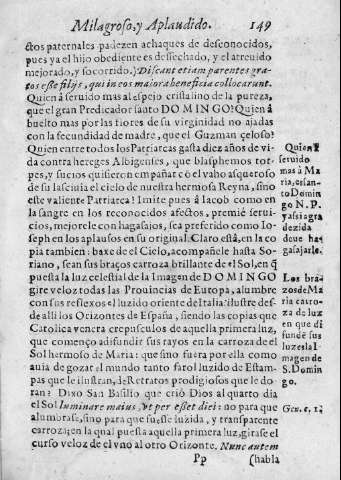 Milagroso, y Aplaudido. 149
ctos paternales padezen achaques de desconocidos,
pues ya el hijo obediente es dessechado, y el atreuido
mejorado, y socorrido.) Discant etiam parentes gra-
tos esse filijs, qui in eos maiora beneficia collocarunt.
Quien à seruido mas al espejo cristalino de la pureza,
que el gran Predicador santo DOMINGO? Quien à
buelto mas por las flores de su virginidad no ajadas
con la fecundidad de madre, que el Guzman çeloso?
Quien entre todos los Patriarcas gasta diez años de vi-
da contra hereges Albigenses, que blasphemos tor-
pes, y sucios quisieron empañar cō el vaho asqueroso
de su lasciuia el cielo de nuestra hermosa Reyna, sino
este valiente Patriarca? Imite pues à Iacob como en
la sangre en los reconocidos afectos, premie serui-
cios, mejorele con hagasajos, sea preferido como Io-
seph en los aplausos en su original. Claro està, en la co
pia tambien: baxe de el Cielo, acompañele hasta So-
riano, sean sus braços carroza brillante de el Sol, en q̄
puesta la luz celestial de la Imagen de DOMINGO
gire veloz todas las Prouincias de Europa, alumbre
con sus reflexos el luzido oriente de Italia: ilustre des-
de alli los Orizontes de España, siendo las copias que
Catolica venera crepusculos de aquella primera luz,
que començo adifundir sus rayos en la carroza de el
Sol hermoso de Maria: que sino fuera por ella como
auia de gozar el mundo tanto farol luzido de Estam-
pas que le ilustran, de Retratos prodigiosos que le do-
ran? Dixo San Basilio que criò Dios al quarto dia
el Sol luminare maius, vt per esset diei: no para que
alumbrase, sino para que suesse luzida, y transparente
carroza; en la qual puesta aquella primera luz, girase el
curso veloz de el vno al otro Orizonte. Nunc autem
Pp (habla
Quien à
seruido
mas à Ma
ria, es san-
to Domin
go N. P.
y assi agra
dezida
deue ha-
gasajarle.
Los bra-
zos de Ma
ria carro-
za de luz
en que di
funde sus
luzes la I-
magen de
S. Domin
go.
Gen. c. 1.